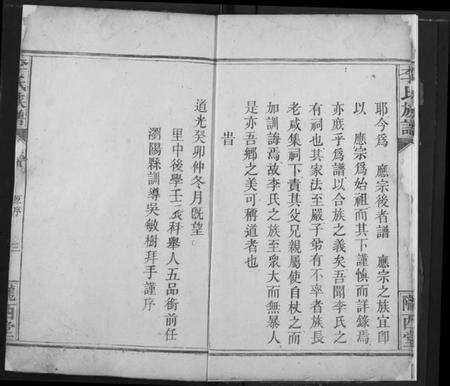 李氏族譜
隴西堂
耶今爲　應宗後者譜　應宗之族宜即
以　應宗爲始祖而其下謹慎而詳錄焉
亦庶乎爲譜以合族之義矣吾聞李氏之
有祠也其家法至嚴子弟有不率者族長
老咸集祠下責其父兄親屬使自杖之而
加訓誨焉故李氏之族至衆大而無暴人
是亦吾鄉之美可稱道者也
旹
道光癸卯仲冬月既望
里中後學壬辰科舉人五品銜前任
瀏陽縣訓導吳敏樹拜手謹序
李氏族譜
序
三